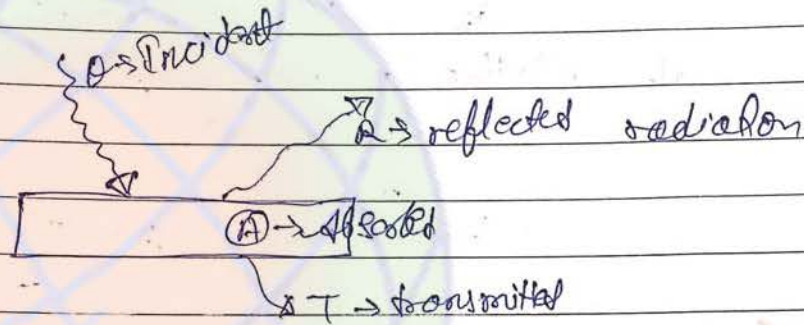 Q → Incident
R → reflected radiation
(A) → Absorbed
T → transmitted